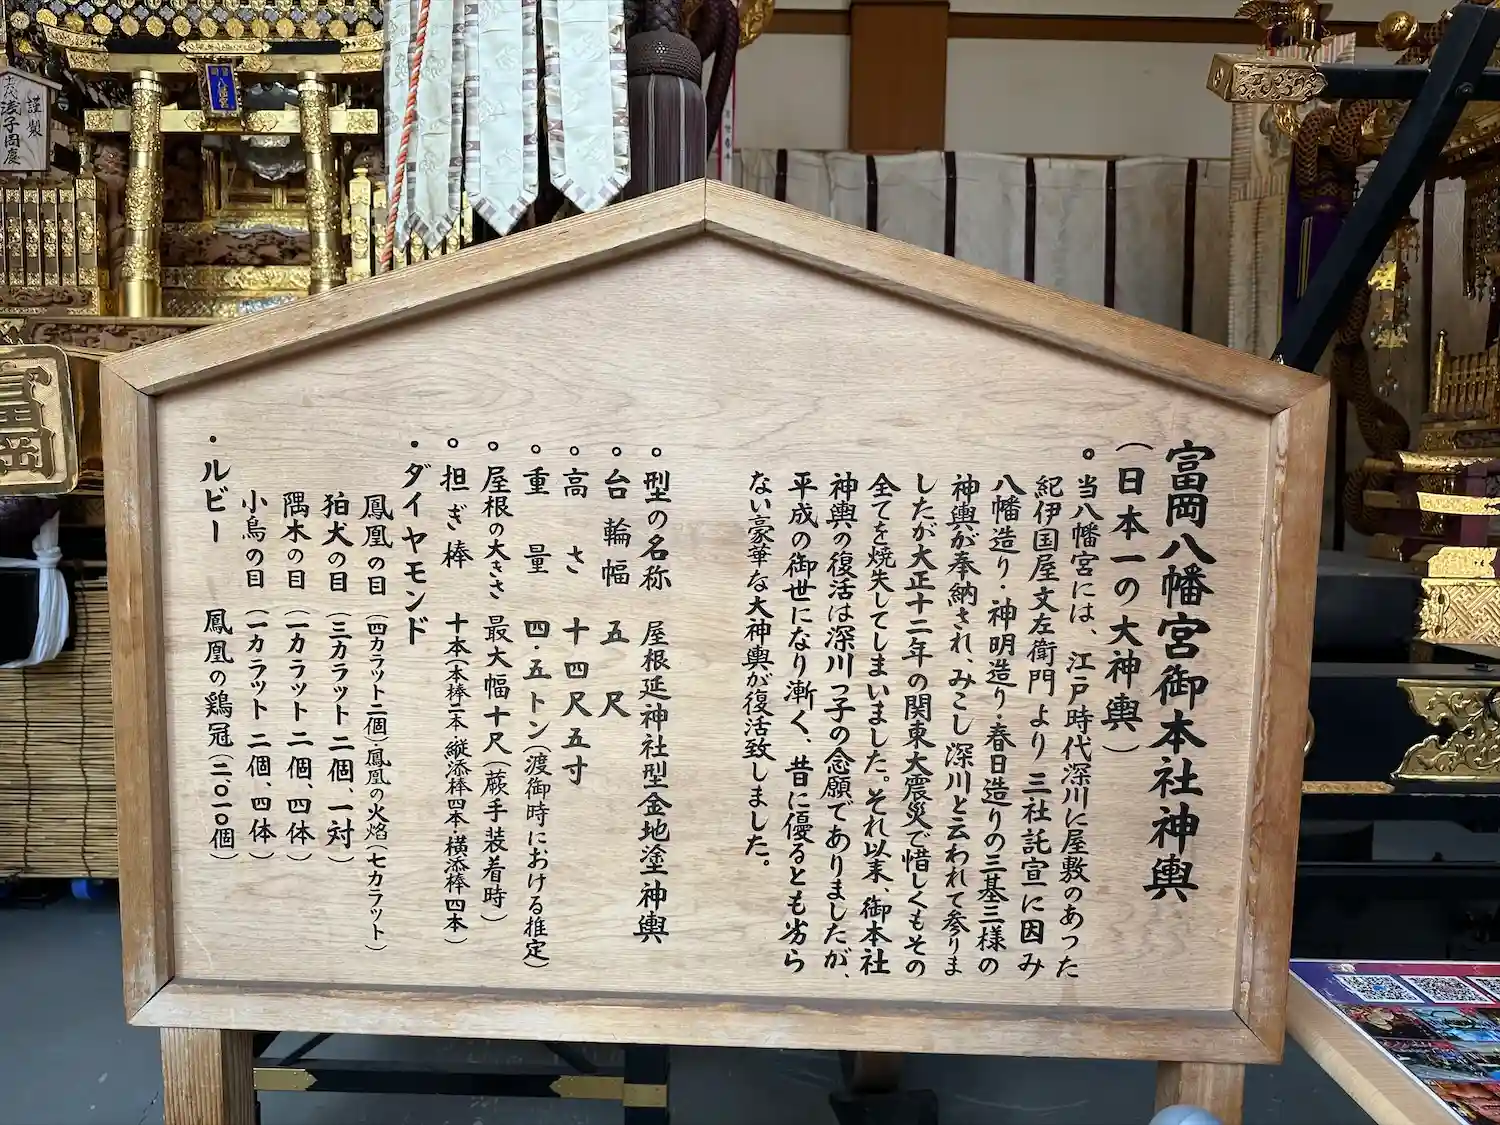 富岡八幡宮御本社神輿
(日本一の大神輿)
。当八幡宮には、江戸時代深川に屋敷のあった
紀伊国屋文左衛門より三社託宣に因み
八幡造り・神明造り・春日造りの三基三様の
神輿が奉納され、みこし深川と云われて参りま
したが大正十二年の関東大震災で惜しくもその
全てを焼失してしまいました。それ以来、御本社
神輿の復活は深川っ子の念願でありましたが、
平成の御世になり漸く、昔に優るとも劣ら
ない豪華な大神輿が復活致しました。
。型の名称 屋根延神社型金地塗神輿
。台輪幅 五尺
。高さ 十四尺五寸
。重量 四・五トン(渡御時における推定)
。屋根の大きさ 最大幅十尺(蕨手装着時)
。担ぎ棒 十本(本棒二本・縦添棒四本・横添棒四本)
・ダイヤモンド
鳳凰の目 (四カラット二個)・鳳凰の火焔(七カラット)
狛犬の目 (三カラット二個、一対)
隅木の目 (一カラット二個、四体)
小鳥の目 (一カラット二個、四体)
・ルビー 鳳凰の鶏冠(二〇一〇個)
謹製
八幡宮
富岡